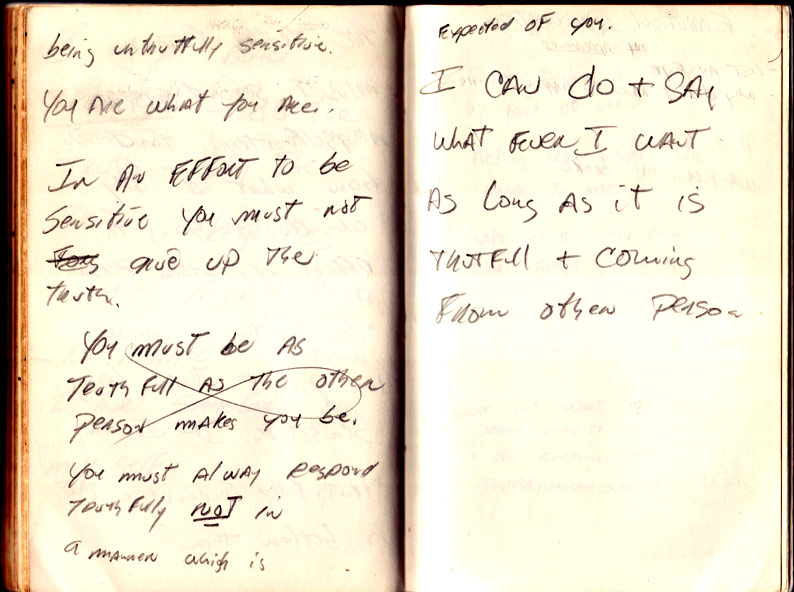 being untruthfully sensitive.
You Are what you Are.
In An EFFORT to be
Sensitive you must not
give up the
truth.
You must be As
Truthfull As the other
person makes you be.
You must Alway Respond
Truthfully not in
a manner which is
Expected of you.
I CAN do + SAy
WHAT EVER I WANT
As long As it is
truthfull + coming
From other person